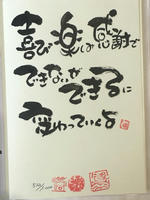 喜び楽しみ感謝で
できないができるに
変わっていくよ